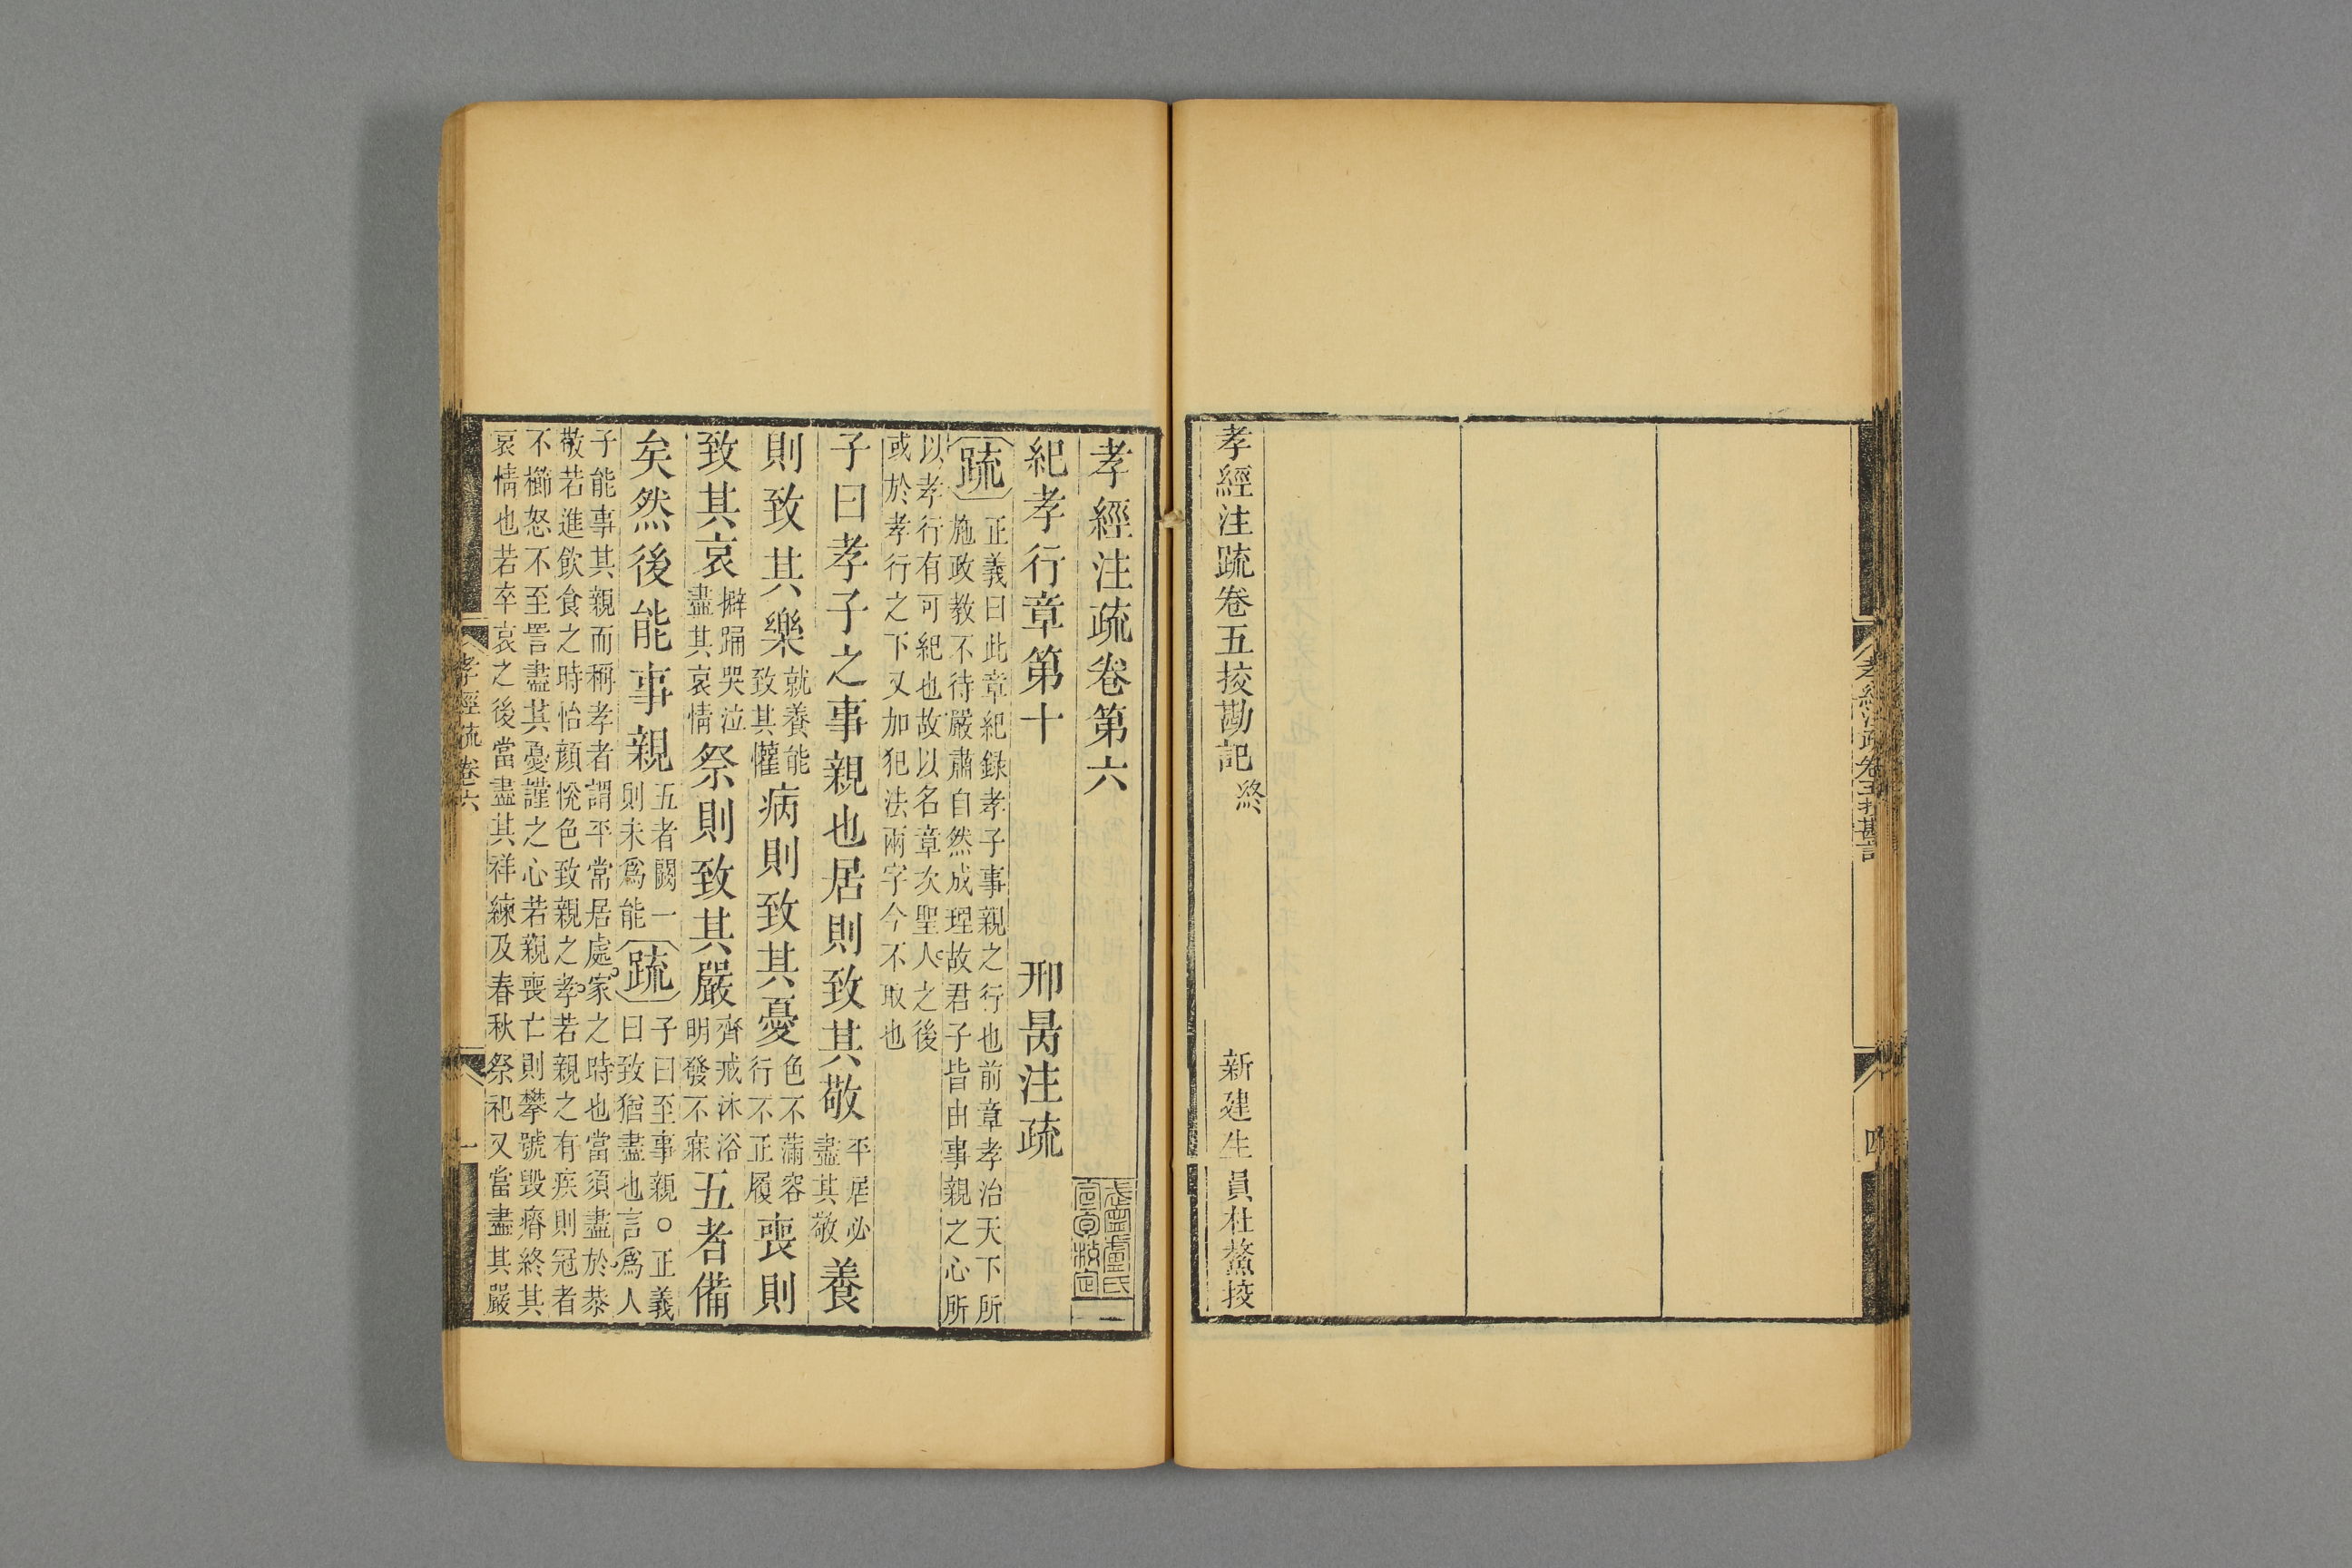 孝經注疏卷五挍勘記終
新建生員杜鰲挍
孝經注疏卷第六
紀孝行章第十
邢昺注疏
疏
正義曰此章紀錄孝子事親之行也前章孝治天下所
施政教不待嚴肅自然成理故君子皆由事親之心所
以孝行有可紀也故以名章次聖人之後
或於孝行之下又加犯法兩字今不取也
子曰孝子之事親也居則致其敬
平居必
盡其敬
養
則致其樂
就養能
致其懽
病則致其憂
色不滿容
行不正履
喪則
致其哀
擗踊哭泣
盡其哀情
祭則致其嚴
齊戒沐浴
明發不寐
五者備
矣然後能事親
五者闕一
則未爲能
疏
子曰至事親○正義
曰致猶盡也言爲人
子能事其親而稱孝者謂平常居處家之時也當須盡於恭
敬若進飲食之時怡顏悅色致親之孝若親之有疾則冠者
不櫛怒不至詈盡其憂謹之心若親喪亡則攀號毀瘠終其
哀情也若卒哀之後當盡其祥練及春秋祭祀又當盡其嚴
孝經疏卷六
一